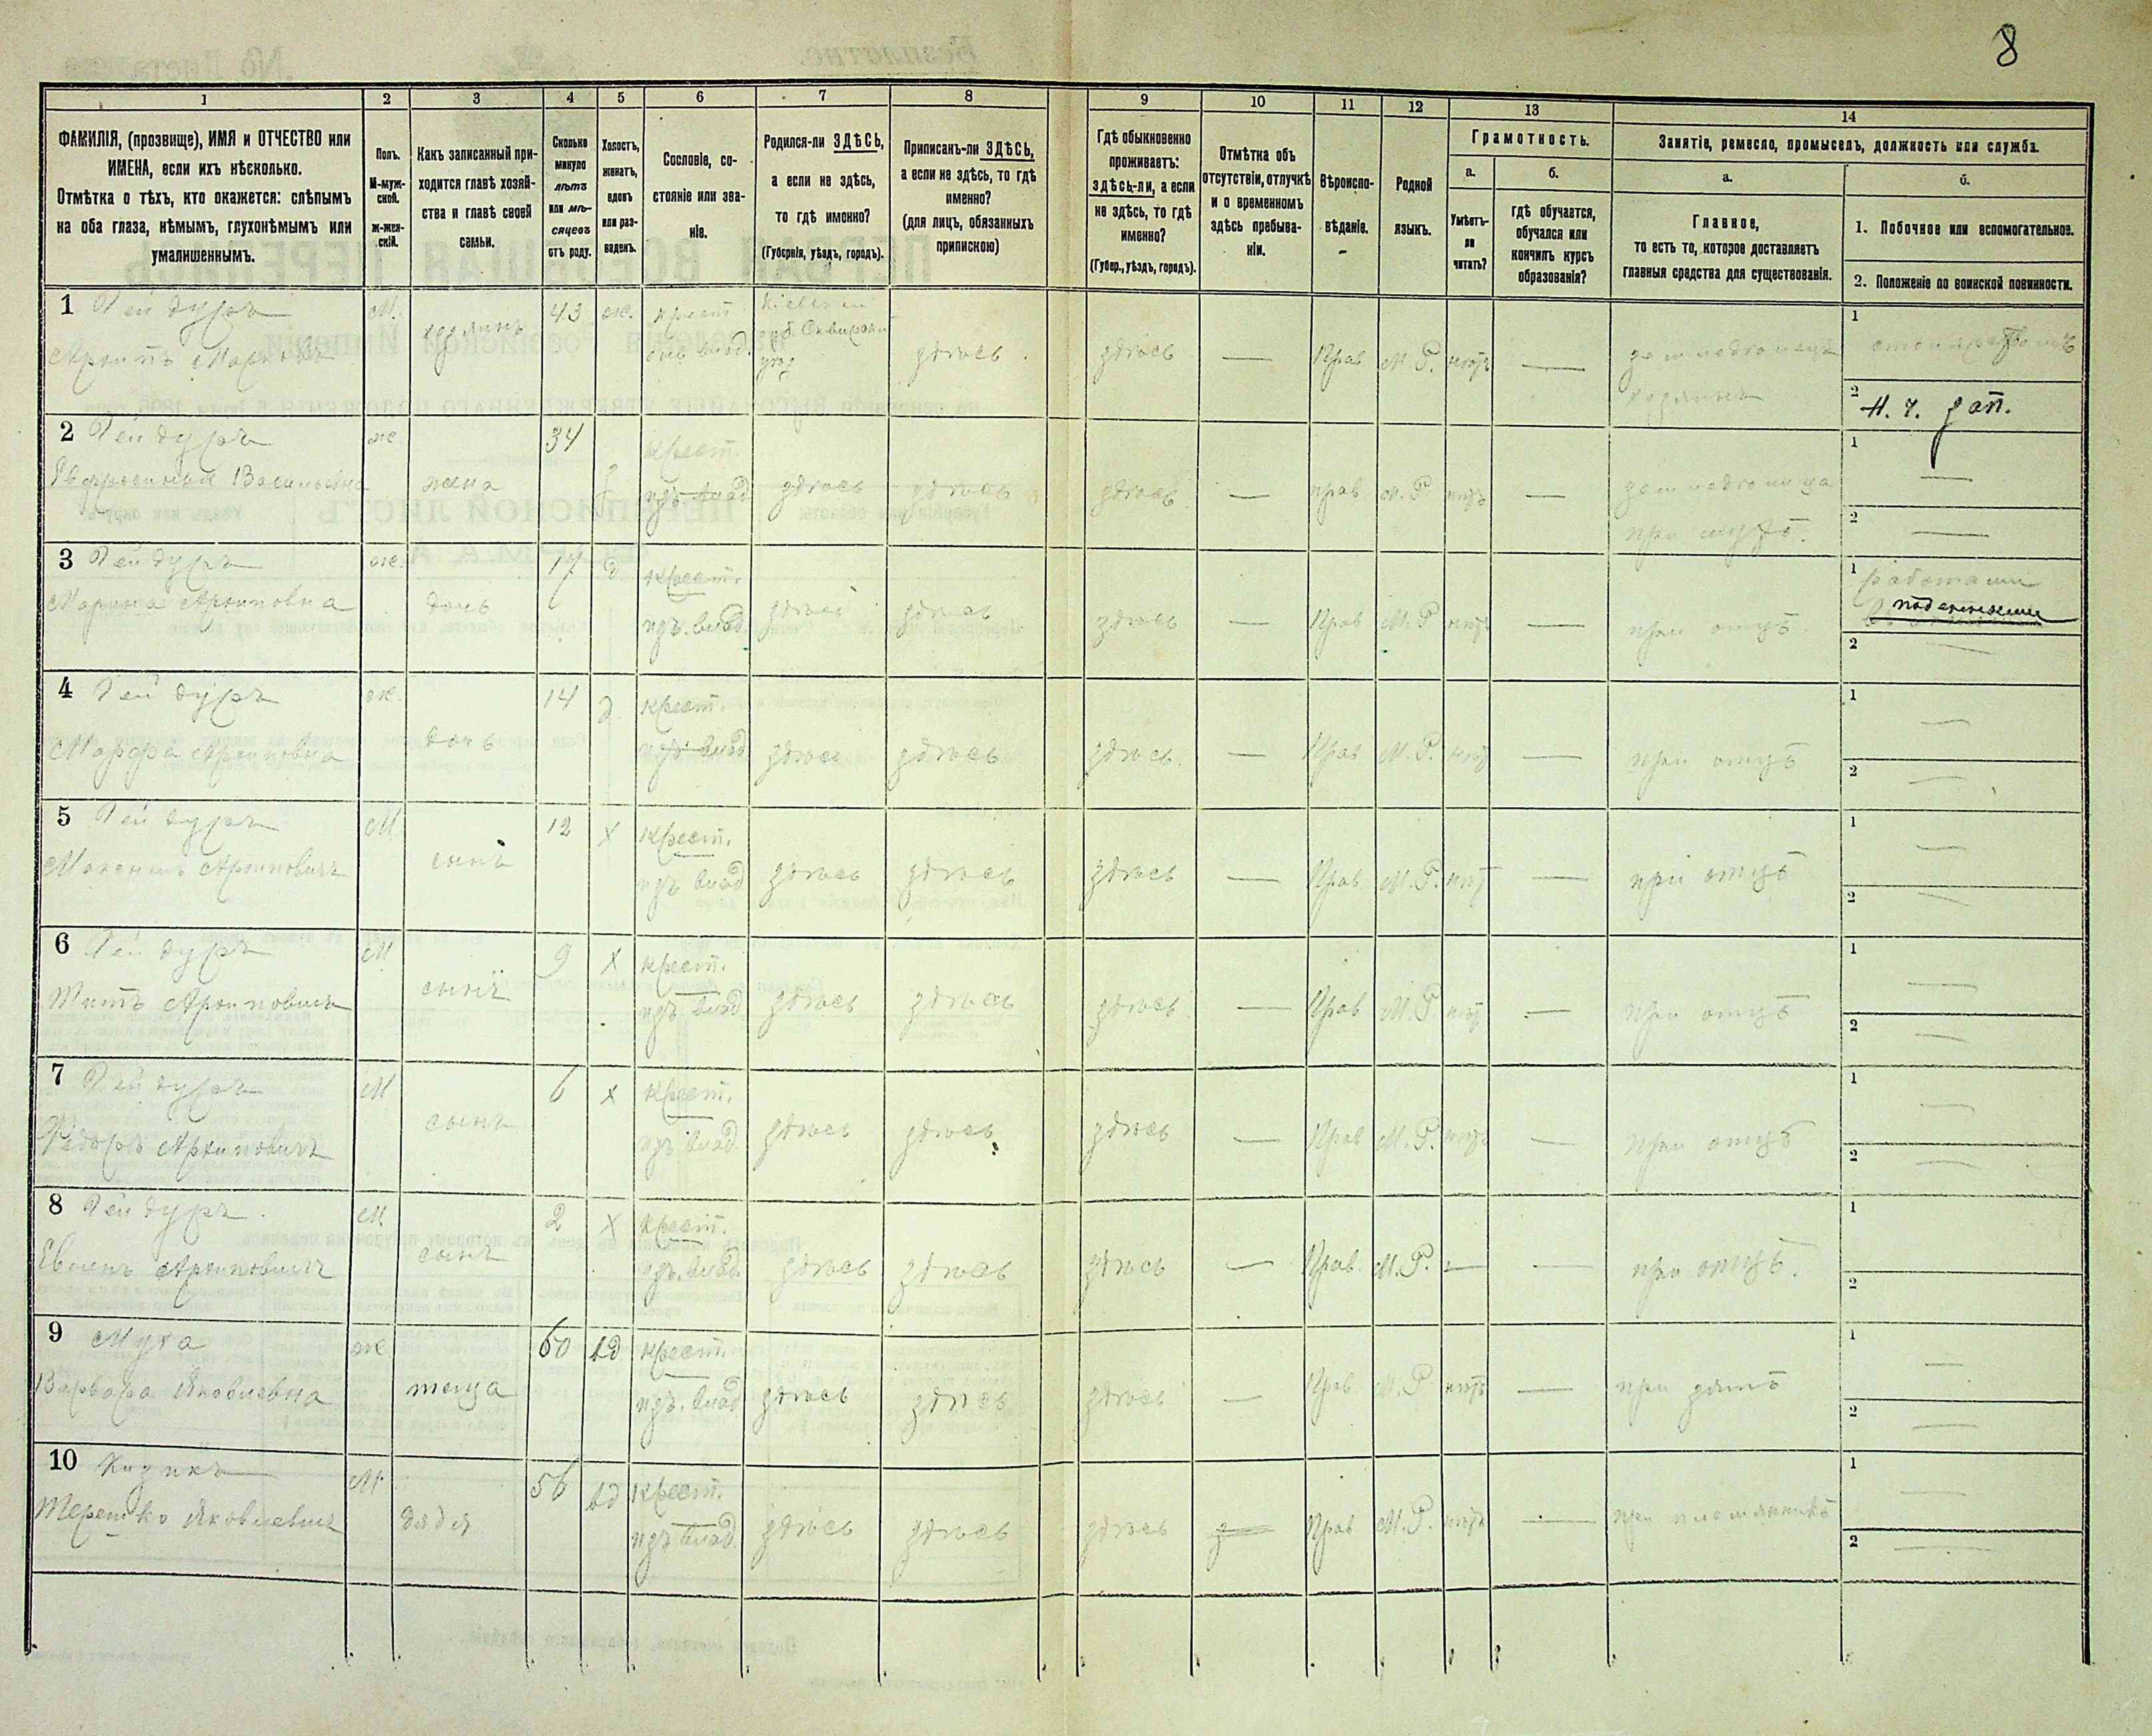 8
1 2 3 4 5 6 7 8 9 10 11 12 13 14
ФАМИЛІЯ, (прозвище), ИМЯ и ОТЧЕСТВО или
ИМЕНА, если ихъ нѣсколько.
Отмѣтка о тѣхъ, кто окажется: слѣпымъ
на оба глаза, нѣмымъ, глухонѣмымъ или
умалишеннымъ.
Полъ.
М-муж-
ской.
Ж-жен-
скій.
Какъ записанный при-
ходится главѣ хозяй-
ства и главѣ своей
семьи.
Сколько
минуло
лѣтъ
или мѣ-
сяцевъ
отъ роду.
Холостъ,
женатъ,
вдовъ
или раз-
веденъ.
Сословіе, со-
стояніе или зва-
ніе.
Родился-ли ЗДѢСЬ,
а если не здѣсь,
то гдѣ именно?
(Губернія, уѣздъ, городъ).
Приписанъ-ли ЗДѢСЬ,
а если не здѣсь, то гдѣ
именно?
(для лицъ, обязанныхъ
припискою)
Гдѣ обыкновенно
проживаетъ:
здѣсь-ли, а если
не здѣсь, то гдѣ
именно?
(Губер., уѣздъ, городъ).
Отмѣтка объ
отсутствіи, отлучкѣ
и о временномъ
здѣсь пребыва-
ніи.
Вѣроиспо-
вѣданіе.
Родной
языкъ.
Грамотность.
а.
Умѣетъ-
ли
читать?
б.
гдѣ обучается,
обучался или
кончилъ курсъ
образованія?
Занятіе, ремесло, промыселъ, должность или служба.
а.
Главное,
то есть то, которое доставляетъ
главныя средства для существованія.
б.
1. Побочное или вспомогательное.
2. Положеніе по воинской повинности.
1 М. хозяинъ 43 ж. крест. здѣсь здѣсь — Прав М. Р. нѣтъ — 1
Архипъ хозяинъ
2 Н. Ч. зап.
2 ж. жена 34 крест. изъ влад. здѣсь здѣсь здѣсь — прав М. Р. нѣтъ — 1 —
Васильевна при мужѣ. 2 —
3 ж. дочь 17 д крест. изъ влад. здѣсь здѣсь здѣсь — Прав М. Р нѣтъ — при отцѣ 1
Марина Архиповна 2 —
4 ж. дочь 14 д крест. изъ влад. здѣсь здѣсь здѣсь — Прав М. Р. нѣтъ — при отцѣ 1 —
Марфа Архиповна 2 —
5 М сынъ 12 х крест. изъ влад здѣсь здѣсь здѣсь — Прав М. Р. нѣтъ — при отцѣ 1 —
Архиповичъ 2 —
6 М сынъ 9 х крест. изъ влад здѣсь здѣсь здѣсь — Прав М. Р. нѣтъ — при отцѣ 1 —
Титъ Архиповичъ 2 —
7 М сынъ 6 х крест. изъ влад. здѣсь здѣсь здѣсь — Прав М. Р. нѣтъ — при отцѣ 1 —
Федоръ Архиповичъ 2 —
8 М сынъ 2 х крест. изъ влад. здѣсь здѣсь здѣсь — Прав. М. Р. — — при отцѣ. 1
Архиповичъ 2
9 Муха ж. теща 60 вд крест. изъ влад здѣсь здѣсь здѣсь — Прав М. Р нѣтъ — при зятѣ 1 —
Варвара Яковлевна 2 —
10 М. дядя 56 вд крест. изъ влад здѣсь здѣсь здѣсь Прав М. Р. нѣтъ — при племянникѣ 1 —
Терешко Яковлевичъ 2 —